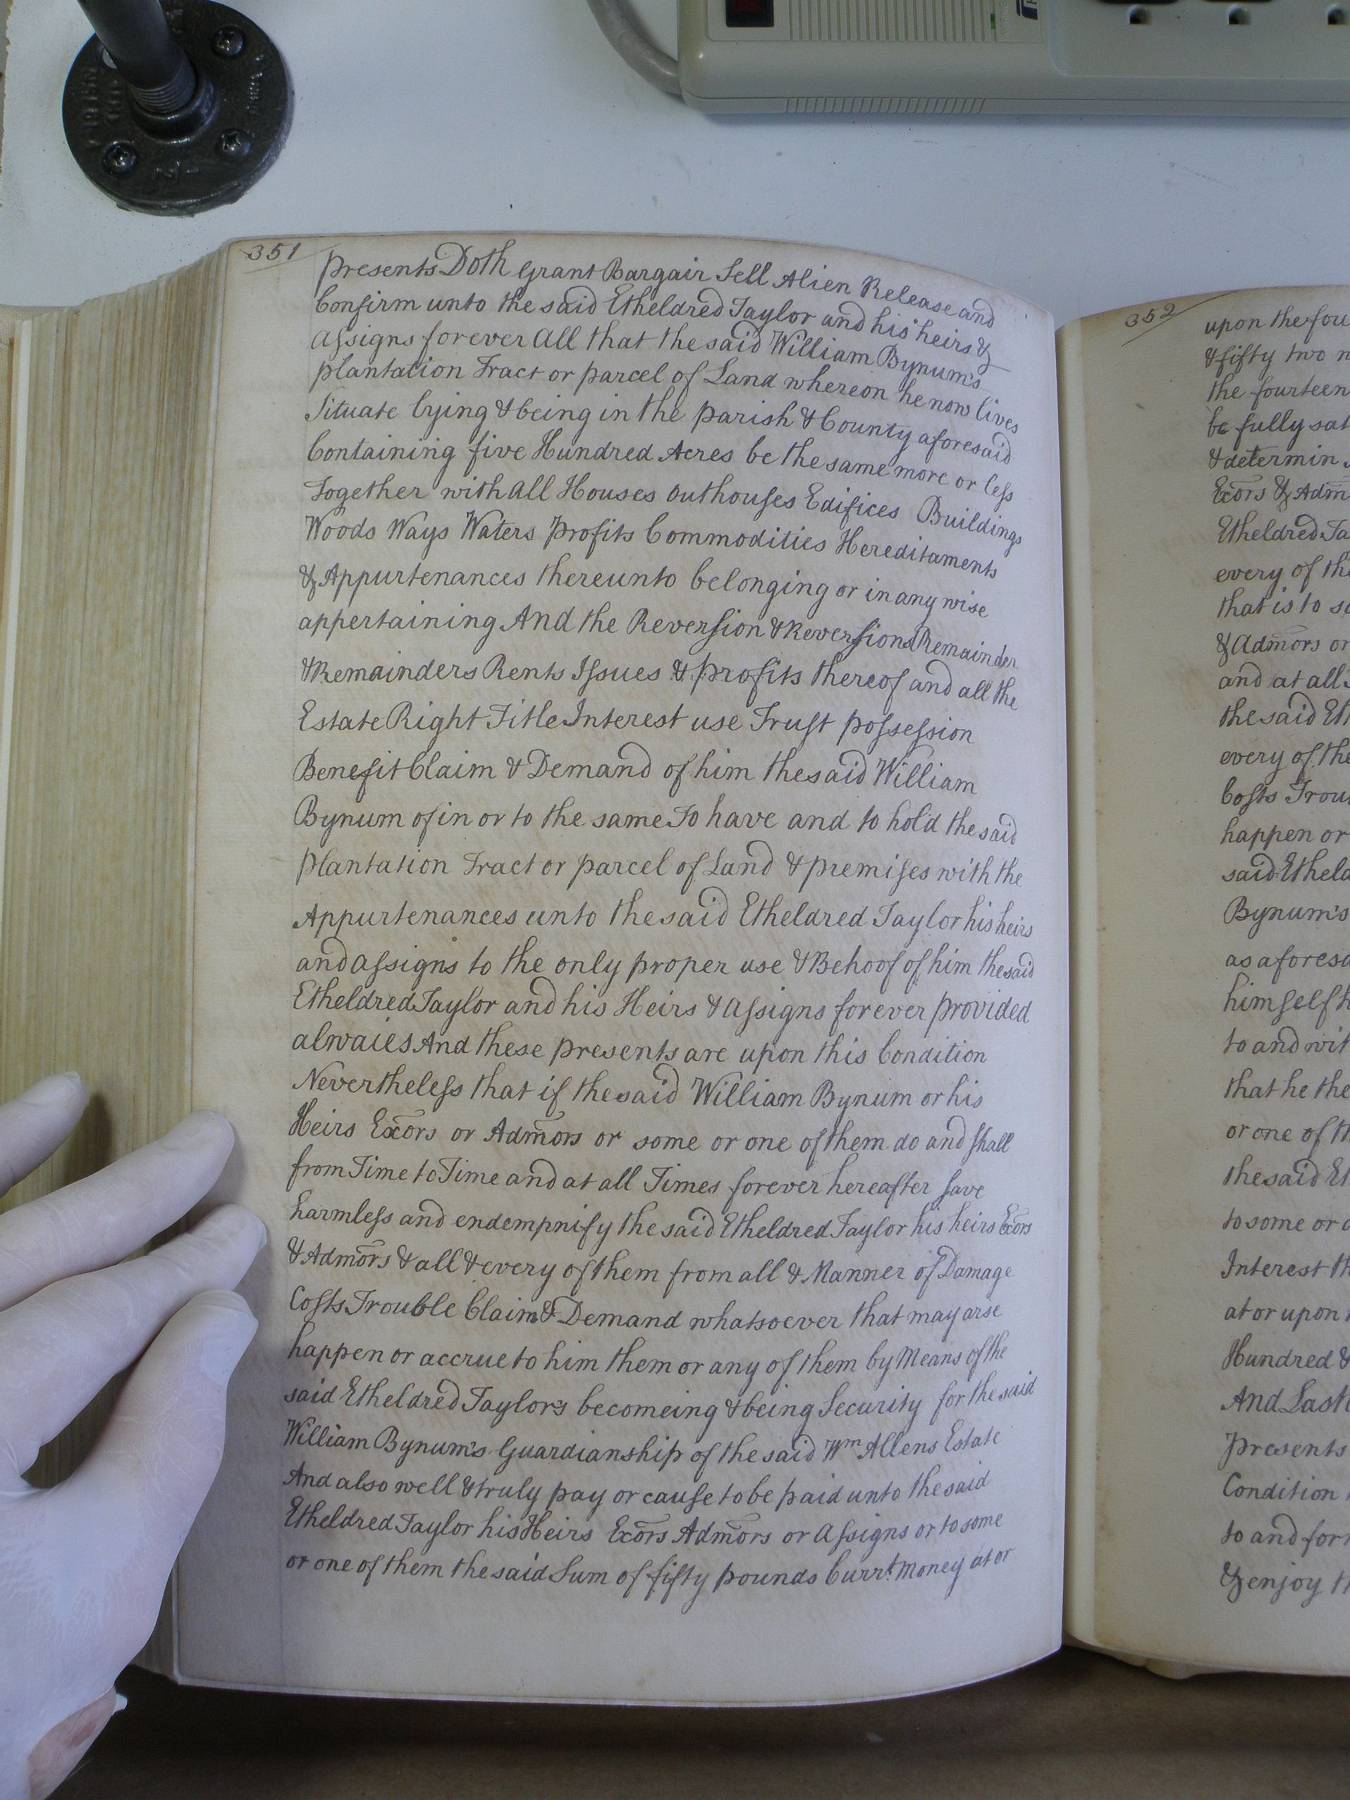 351
presents Doth Grant Bargain Sell Alien Release and
Confirm unto the said Etheldred Taylor and his heirs &
Assigns forever All that the said William Bynum's
plantation Tract or parcel of Land whereon he now lives
Situate lying & being in the parish & County aforesaid
Containing five Hundred Acres be the same more or less
Together with All Houses Outhouses Edifices Buildings
Woods Ways Waters Profits Commodities Hereditaments
& Appurtenances thereunto belonging or in any wise
appertaining And the Reversion & Reversions Remainder
& Remainders Rents Issues & profits thereof and all the
Estate Right Title Interest use Trust possession
Benefit Claim & Demand of him the said William
Bynum of in or to the same To have and to hold the said
plantation Tract or parcel of Land & premises with the
Appurtenances unto the said Etheldred Taylor his heirs
and assigns to the only proper use & Behoof of him the said
Etheldred Taylor and his Heirs & Assigns forever provided
alwaies And these presents are upon this Condition
Nevertheless that if the said William Bynum or his
Heirs Exors or Admors or some or one of them do and shall
from Time to Time and at all Times forever hereafter save
harmless and endempnify the said Etheldred Taylor his heirs Exors
& Admors & all & every of them from all & Manner of Damage
Costs Trouble Claim & Demand whatsoever that may arse
happen or accrue to him them or any of them by Means of the
said Etheldred Taylors becomeing & being Security for the said
William Bynum's Guardianship of the said Wm Allens Estate
And also well & truly pay or cause to be paid unto the said
Etheldred Taylor his Heirs Exors Admors or Assigns or to some
or one of them the said Sum of fifty pounds Currt. Money at or
352
upon the
& fifty two
the fourteen
be fully
& determin
Exors & Adm
Etheldred
every of
that is to
& Admors or
and at all
the said
every of the
Costs
happen or
said
Bynum's
as
himself
to and
that he the
or one of
the said
to some or
Interest
at or upon
Hundred &
And
Presents
Condition
to and for
& enjoy